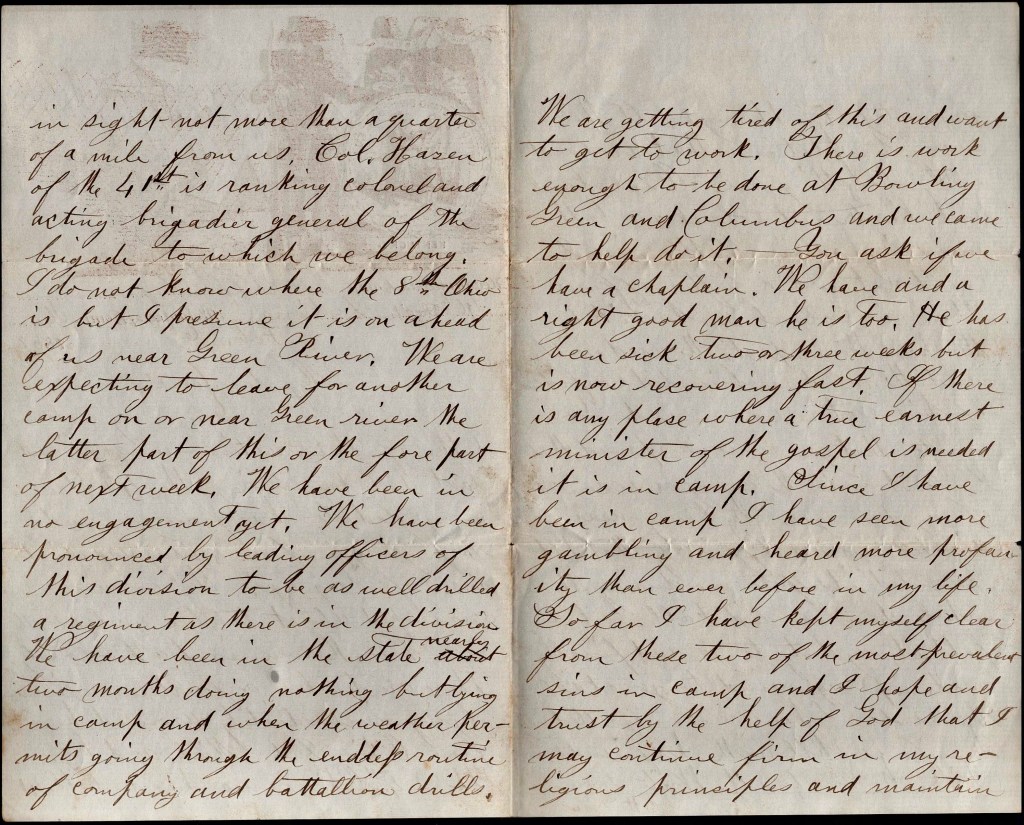 in sight not more than a quarter
of a mile from us. Col. Hazen
of the 41st is ranking colonel and
acting brigadier general of the
brigade to which we belong.
I do not know where the 8th Ohio
is but I presume it is on ahead
of us near Green River. We are
expecting to leave for another
camp on or near Green river the
latter part of this or the fore part
of next week. We have been in
no engagement yet. We have been
pronounced by leading officers of
this division to be as well drilled
a regiment as there is in the division
We have been in the state nearly about
two months doing nothing but lying
in camp and when the weather per-
mits going through the endless routine
of company and battallion drills.
We are getting tired of this and want
to get to work. There is work
enough to be done at Bowling
Green and Columbus and we came
to help do it. — You ask if we
have a chaplain. We have and a
right good man he is too. He has
been sick two or three weeks but
is now recovering fast. If there
is any plase where a true earnest
minister of the gospel is needed
it is in camp. Since I have
been in camp I have seen more
gambling and heard more profan
ity than ever before in my life.
So far I have kept myself clear
from these two of the most prevalent
sins in camp and I hope and
trust by the help of God that I
may continue firm in my re-
ligious principles and maintain